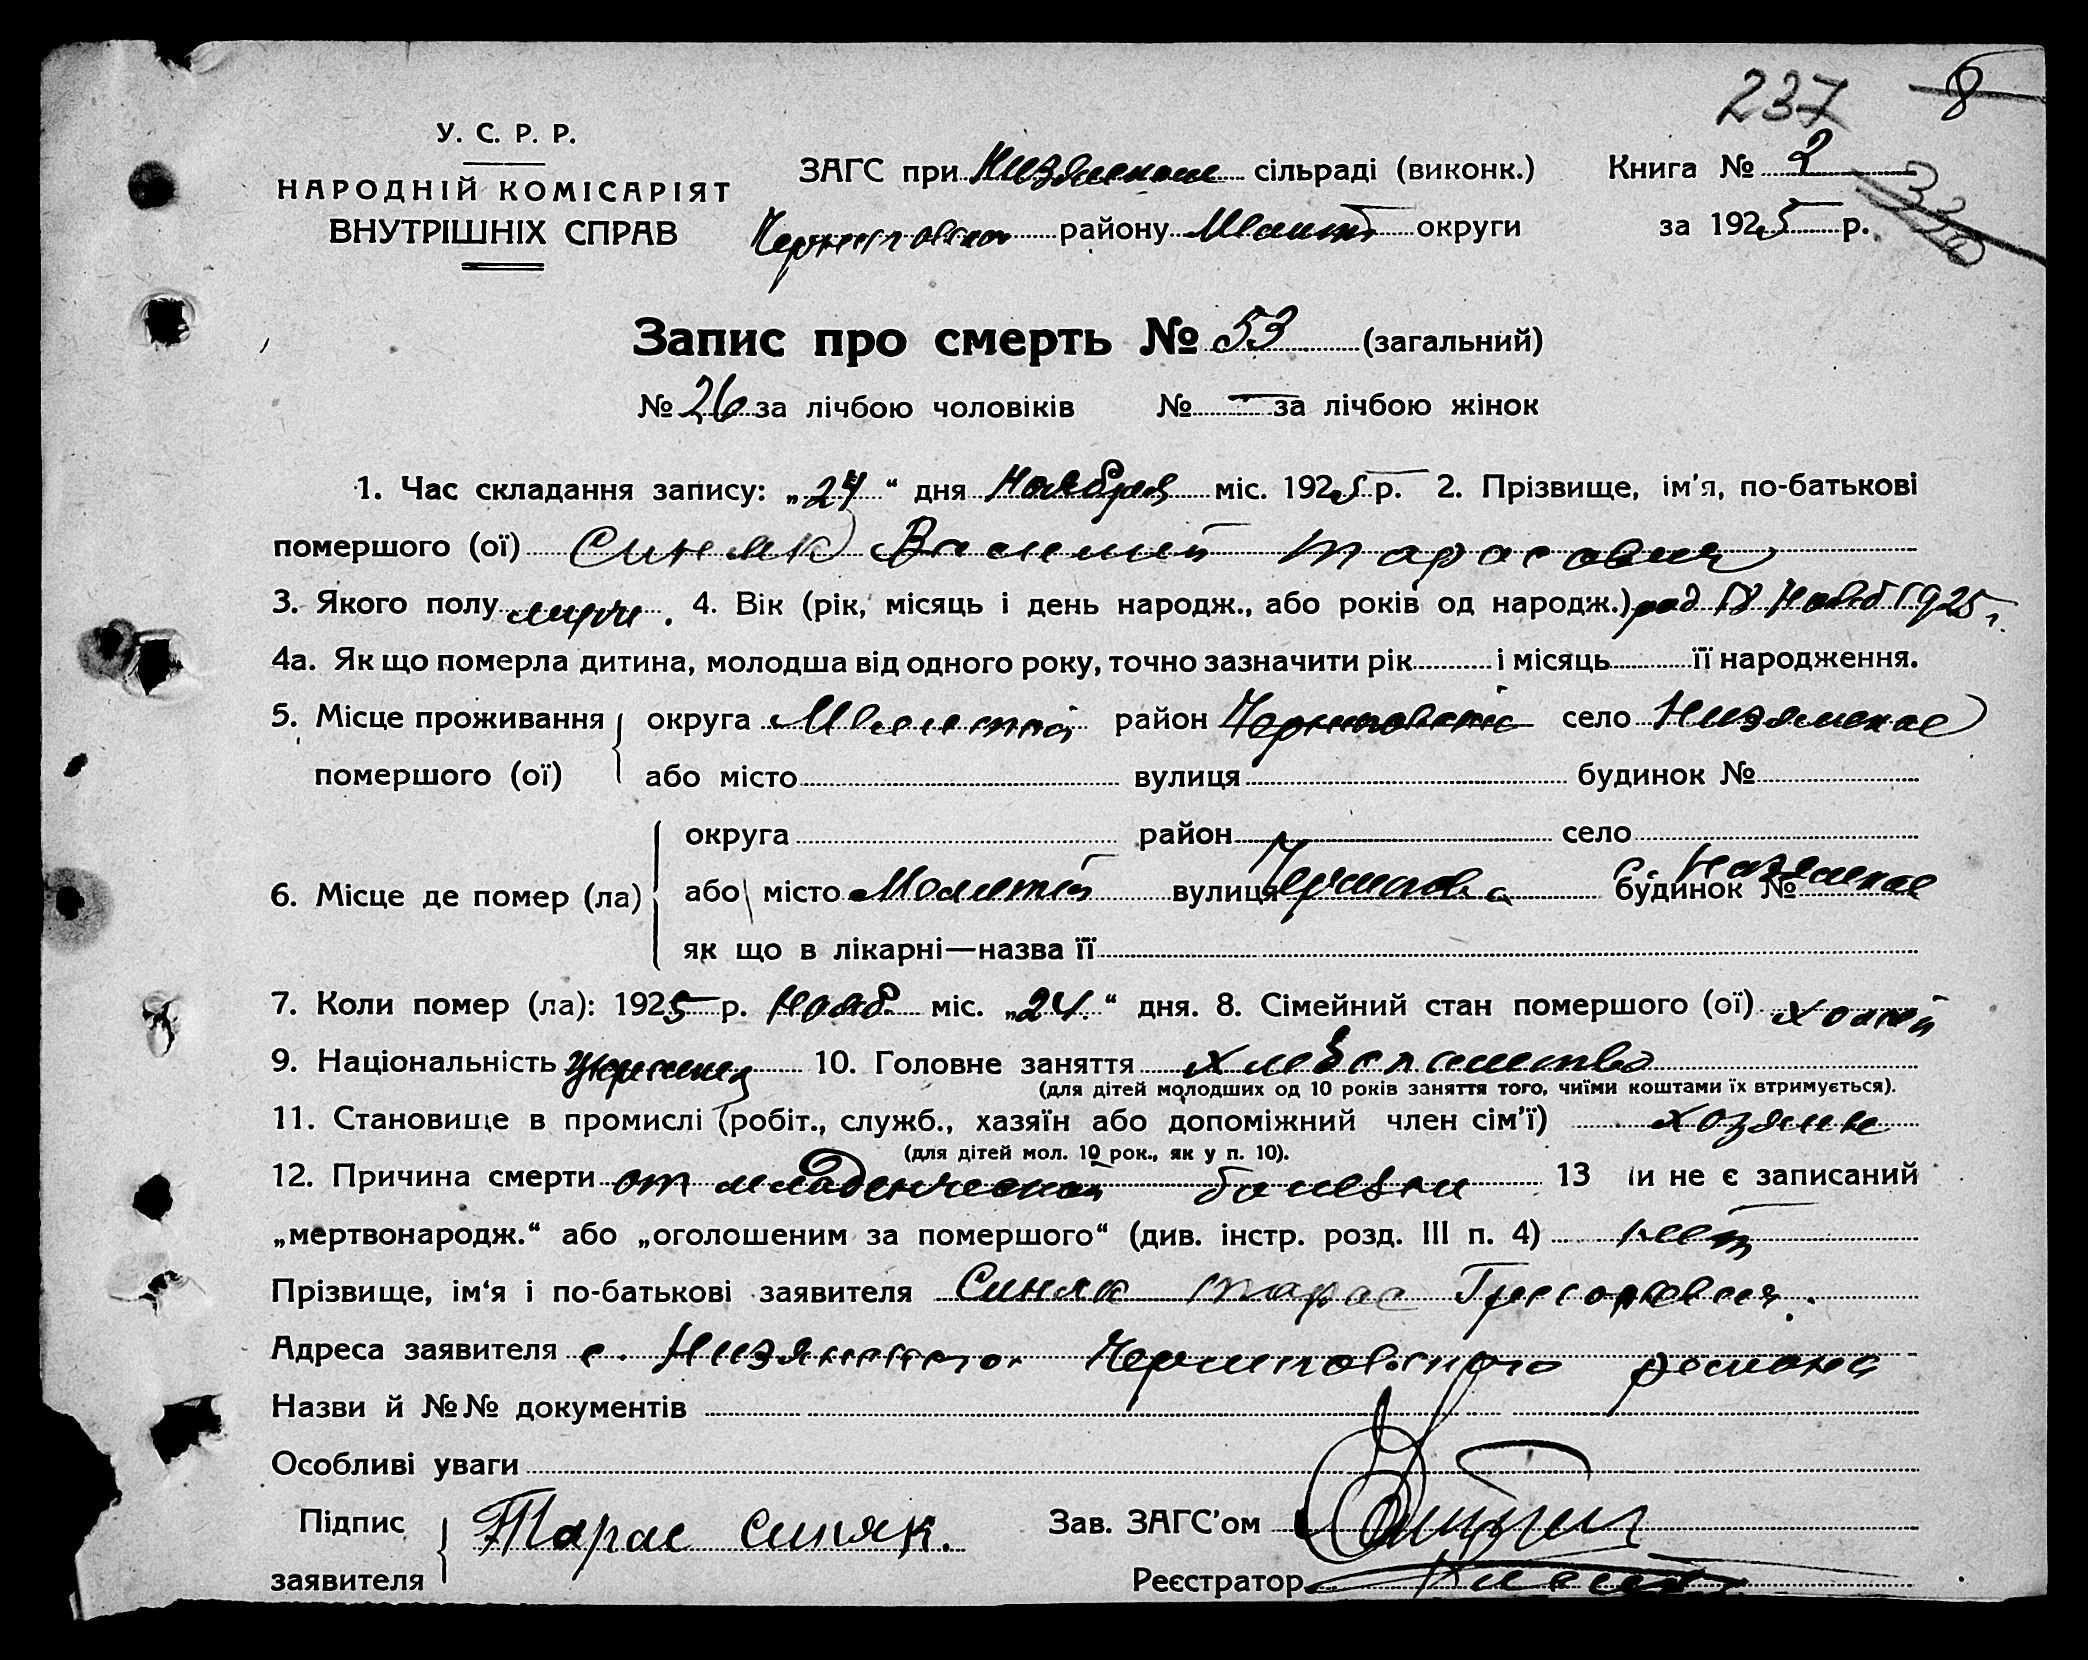 237 8
У. С. Р. Р.
НАРОДНІЙ КОМІСАРІЯТ
ВНУТРІШНІХ СПРАВ
ЗАГС при сільраді (виконк.) Книга № 2
району округи за 1925 р.
Запис про смерть № 53 (загальний)
№ 26 за лічбою чоловіків № — за лічбою жінок
1. Час складання запису: „24“ дня Ноября міс. 1925 р. 2. Прізвище, ім'я, по-батькові
помершого (ої) Синяк Василий Тарасович
3. Якого полу муж. 4. Вік (рік, місяць і день народж., або років од народж.) 1925 г.
4а. Як що померла дитина, молодша від одного року, точно зазначити рік і місяць її народження.
5. Місце проживання округа район село
помершого (ої) або місто вулиця будинок №
округа район село
6. Місце де помер (ла) або місто вулиця будинок №
як що в лікарні—назва її
7. Коли помер (ла): 1925 р. Нояб. міс. „24“ дня. 8. Сімейний стан помершого (ої) холост
9. Національність украинец 10. Головне заняття хлебопашество
(для дітей молодших од 10 років заняття того, чиїми коштами їх втримується).
11. Становище в промислі (робіт., служб., хазяїн або допоміжний член сім'ї) хозяин
(для дітей мол. 10 рок., як у п. 10).
12. Причина смерти от младенческой болезни 13 и не є записаний
„мертвонародж.“ або „оголошеним за помершого“ (див. інстр. розд. III п. 4) нет
Прізвище, ім'я і по-батькові заявителя Синяк Тарас Григорьевич.
Адреса заявителя с. района
Назви й №№ документів
Особливі уваги
Підпис заявителя Тарас Синяк.
Зав. ЗАГС'ом
Реєстратор